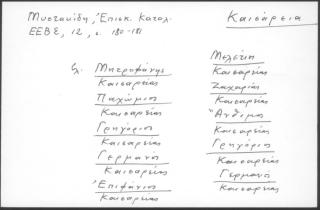 Μυστακίδη, Ἐπισκ. Καταλ.
ΕΕΒΣ, 12, σ. 180-181
Καισάρεια
Μητροφάνης
Καισαρείας
Παχώμιος
Καισαρείας
Γρηγόριος
Καισαρείας
Γερμανὸς
Καισαρείας
Ἐπιφάνιος
Καισαρείας
Μελέτιος
Καισαρείας
Ζαχαρίας
Καισαρείας
Ἄνθιμος
Καισαρείας
Γρηγόριος
Καισαρείας
Γερμανὸς
Καισαρείας